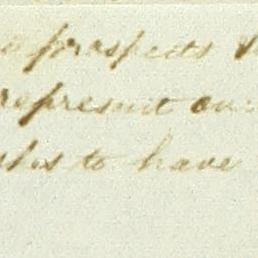 prospects
represent our
to have